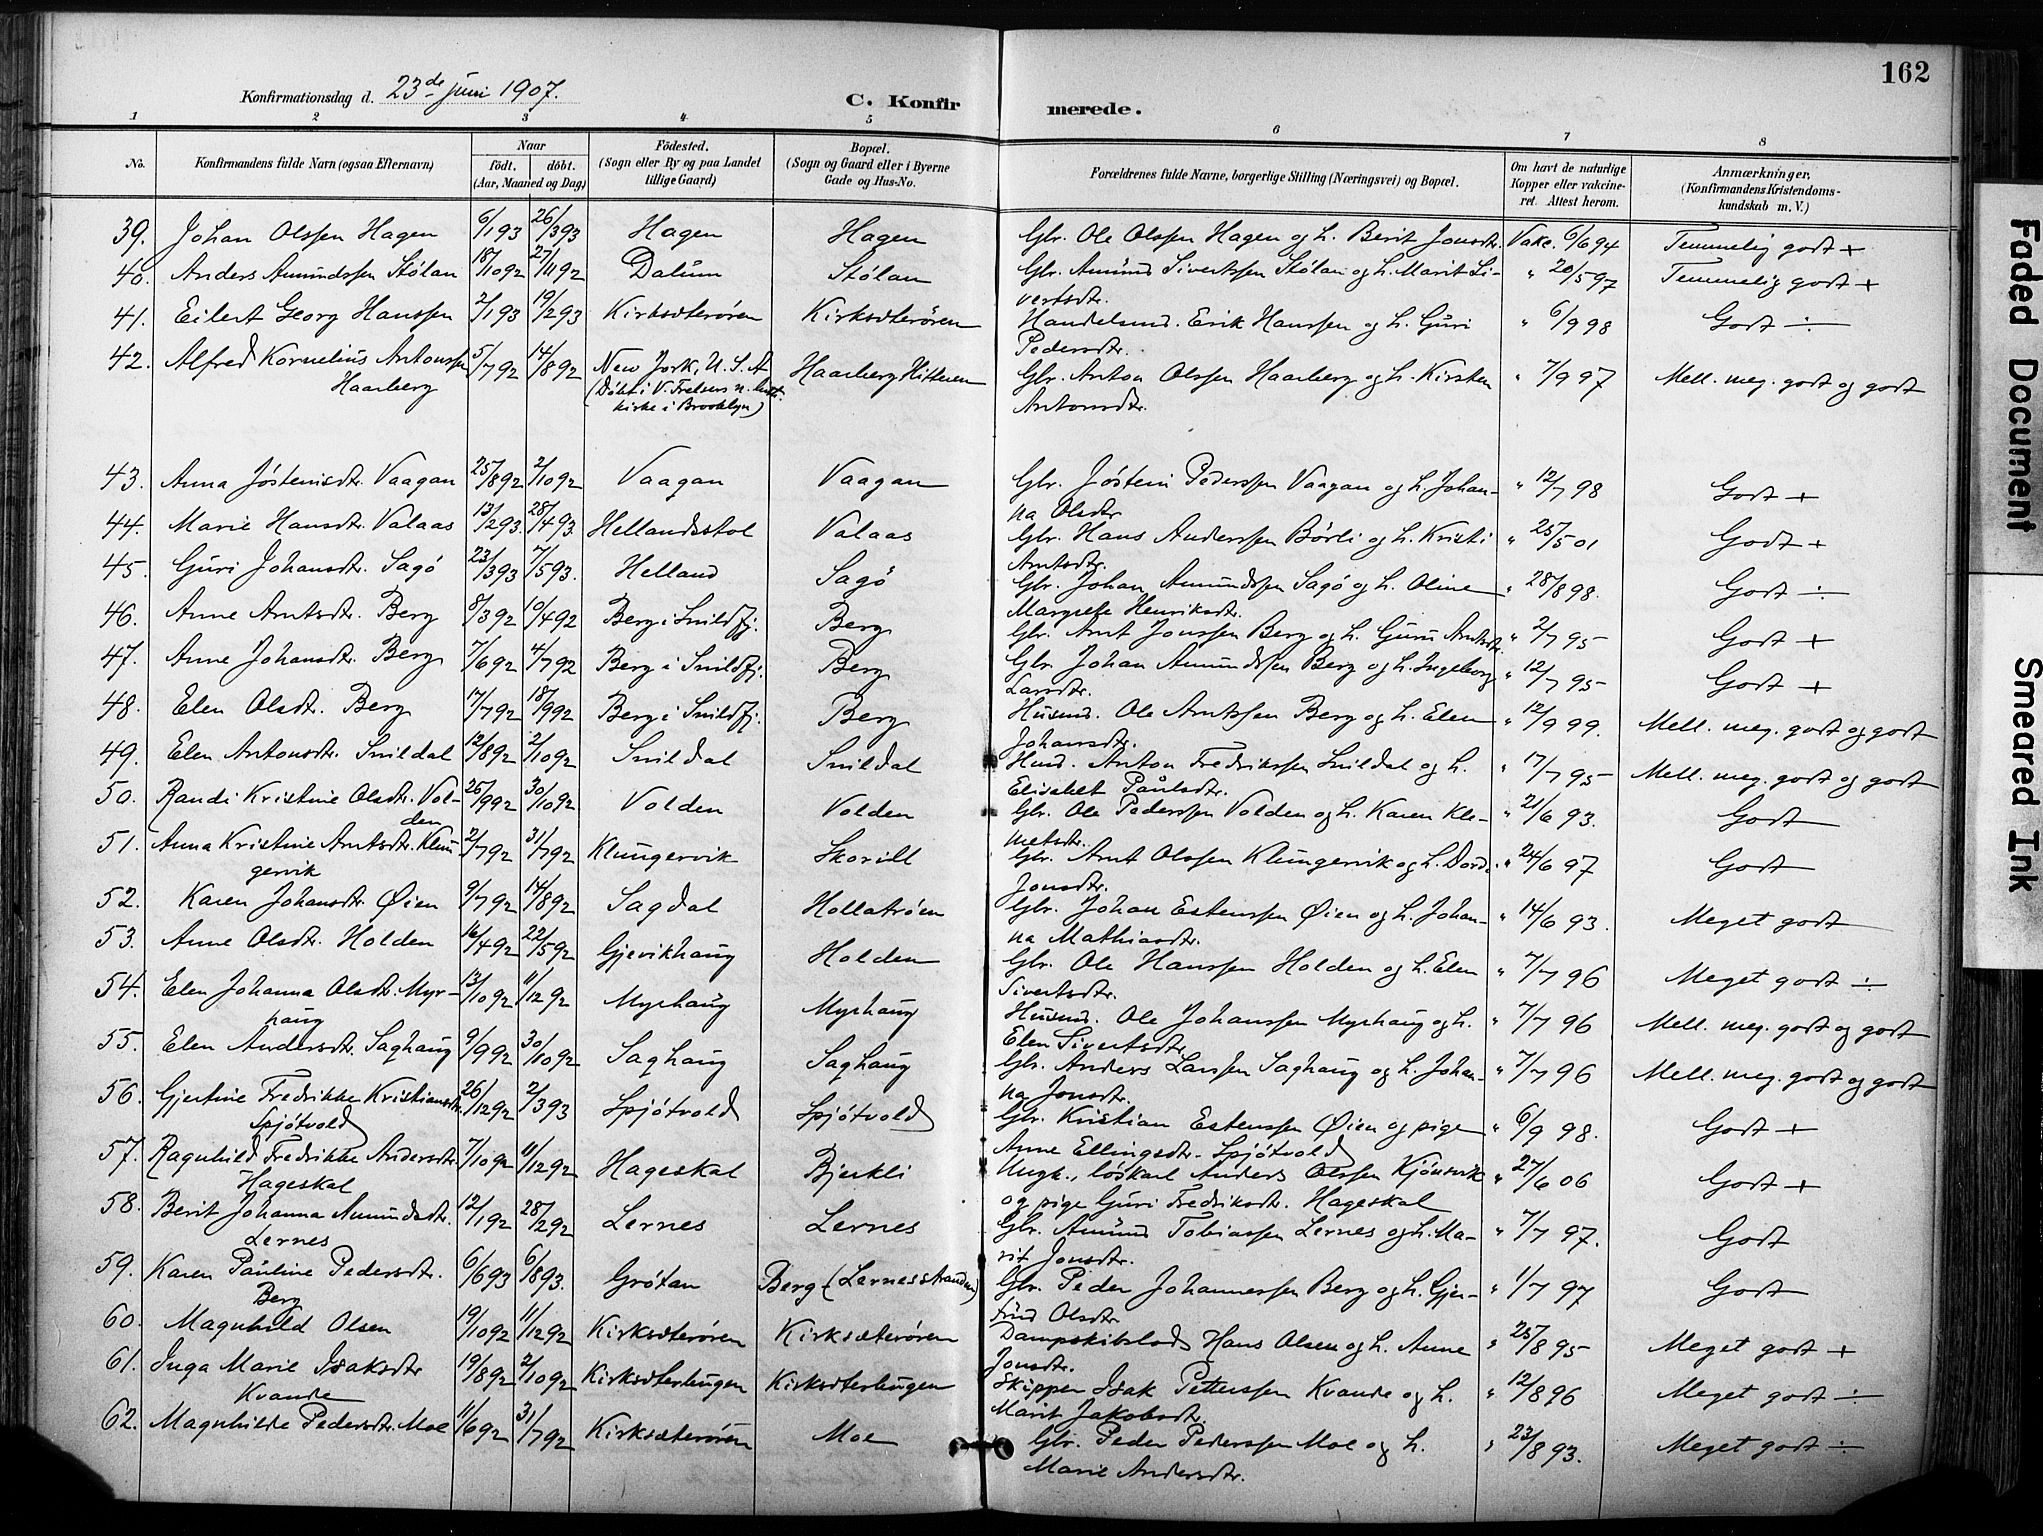 162
Konfirmationsdag d. 23de juni 1907.
C. Konfirmerede.
1 2 3 4 5 6 7 8
No. Konfirmandens fulde Navn (ogsaa Efternavn) Naar født. døbt. (Aar, Maaned og Dag) Fødested. (Sogn eller By og paa Landet tillige Gaard) Bopæl. (Sogn og Gaard eller i Byerne Gade og Hus-No. Forældrenes fulde Navne, borgerlige Stilling (Næringsvei) og Bopæl. Om havt de naturlige Kopper eller vakcineret. Attest herom. Anmærkninger. (Konfirmandens Kristendomskundskab m. V.)
39. Johan Olssen Hagen 6/1 93 26/3 93 Hagen Hagen Gbr. Ole Olssen Hagen og h. Berit Jonsdtr. Vakc. 6/6 94 Temmelig godt +
40. Anders Amundssen Stølan 18/10 92 27/11 92 Dalum Stølan Gbr. Amund Sivertssen Stølan og h. Marit Si- " 20/5 97 Temmelig godt +
vertsdtr.
41. Eilert Georg Hanssen 2/1 93 19/2 93 Kirksæterøren Kirksæterøren Handelsmd. Erik Hanssen og h. Guri " 6/9 98 Godt ÷
Pedersdtr.
42. Alfred Kornelius Antonssen 5/7 92 14/8 92 New Jork, U. S. A Haarberg Hitteren Gbr. Anton Olssen Haarberg og h. Kirsten " 7/9 97 Mell. meg. godt og godt
Haarberg (Døbt i V. Frelsers n. luth. Antonsdtr.
kirke i Brooklyn)
43. Anna Jøstensdtr. Vaagan 25/8 92 2/10 92 Vaagan Vaagan Gbr. Jøsten Pederssen Vaagan og h. Johan- " 12/7 98 Godt +
na Olsdtr
44. Marie Hansdtr. Valaas 13/2 93. 28/4 93. Hellandsstol Valaas Gbr. Hans Anderssen Børli og h. Kristi " 25/5 01 Godt +
Arntsdtr.
45. Guri Johansdtr. Sagø 23/3 93 7/5 93. Helland Sagø Gbr. Johan Amundssen Sagø og h. Oline " 28/8 98. Godt ÷
Margrete Henriksdtr.
46. Anne Arntsdtr. Berg 8/3 92 10/4 92 Berg i Snildfj. Berg Gbr. Arnt Jonssen Berg og h. Guru Arntsdtr. " 2/7 95 Godt +
47. Anne Johansdtr. Berg 7/6 92 4/7 92 Berg i Snildfj. Berg Gbr. Johan Amundssen Berg og h. Ingeborg " 12/7 95 Godt +
Larsdtr.
48. Elen Olsdtr. Berg 17/7 92 18/9 92 Berg i Snildfj. Berg Husmd. Ole Arntssen Berg og h. Elen " 12/9 99. Mell. meg. godt og godt
Johansdtr.
49. Elen Antonsdtr. Snildal 12/8 92 2/10 92 Snildal Snildal Hmd. Anton Fredrikssen Snildal og h. " 17/7 95 Mell. meg. godt og godt
Elisabet Paulsdtr.
50. Randi Kristine Olsdtr. Vol- 26/9 92 30/10 92 Volden Volden Gbr. Ole Pederssen Volden og h. Karen Kle- " 21/6 93. Godt
den metsdtr.
51. Anna Kristine Arntsdtr. Klun 2/7 92 31/7 92 Klungervik Skorill Gbr. Arnt Olssen Klungervik og h. Dordi " 24/6 97 Godt
gervik Jonsdtr.
52. Karen Johansdtr. Øien 9/7 92 14/8 92 Sagdal Hollatrøen Gbr. Johan Estenssen Øien og h. Johan- " 14/6 93. Meget godt
na Mathiasdtr.
53. Anne Olsdtr. Holden 16/4 92 22/5 92 Gjevikhaug Holden Gbr. Ole Hanssen Holden og h. Elen " 7/7 96 Meget godt ÷
Sivertsdtr.
54. Elen Johanna Olsdtr. Myr- 13/10 92 11/12 92 Myrhaug Myrhaug Husmd. Ole Johanssen Myrhaug og h. " 7/7 96 Mell. meg. godt og godt
haug Elen Sivertsdtr.
55. Elen Andersdtr. Saghaug 9/9 92 30/10 92 Saghaug Saghaug Gbr. Anders Larssen Saghaug og h. Johan- " 7/7 96 Mell. meg. godt og godt
na Jonsdtr.
56. Gjertine Fredrikke Kristiansdtr. 26/12 92 2/3 93 Spjøtvold Spjøtvold Gbr. Kristian Estenssen Øien og pige " 6/9 98. Godt +
Spjøtvold Anne Ellingsdtr. Spjøtvold
57. Ragnhild Fredrikke Andersdtr. 7/10 92 11/12 92 Hageskal Bjerkli Ungk., løskarl Anders Olssen Kjønsvik " 27/6 06 Godt +
Hageskal og pige Guri Fredriksdtr. Hageskal
58. Berit Johanna Amundsdtr. 12/1 92 28/2 92 Lernes Lernes Gbr. Amund Tobiassen Lernes og h. Ma- " 7/7 97. Godt
Lernes rit Jonsdtr.
59. Karen Pauline Pedersdtr. 6/6 93 6/8 93. Grøtan Berg (Lernesstranden) Gbr. Peder Johannessen Berg og h. Gjer- " 1/7 97 Godt
Berg trud Olsdtr
60. Magnhild Olsen 19/10 92 11/12 92 Kirksæterøren Kirksæterøren Dampskibslods Hans Olsen og h. Anne " 25/8 95 Meget godt +
Jonsdtr.
61. Inga Marie Isaksdtr 19/8 92 2/10 92 Kirksæterleugen Kirksæterleugen Skipper Isak Petterssen Kvande og h. " 12/8 96 Meget godt ÷
Kvande Marit Jakobsdtr.
62. Magnhilde Pedersdtr. Moe 11/6 92 31/7 92 Kirksæterøren Moe Gbr. Peder Pederssen Moe og h. " 23/8 93. Meget godt ÷
Marie Andersdtr.
Faded Document Smeared Ink